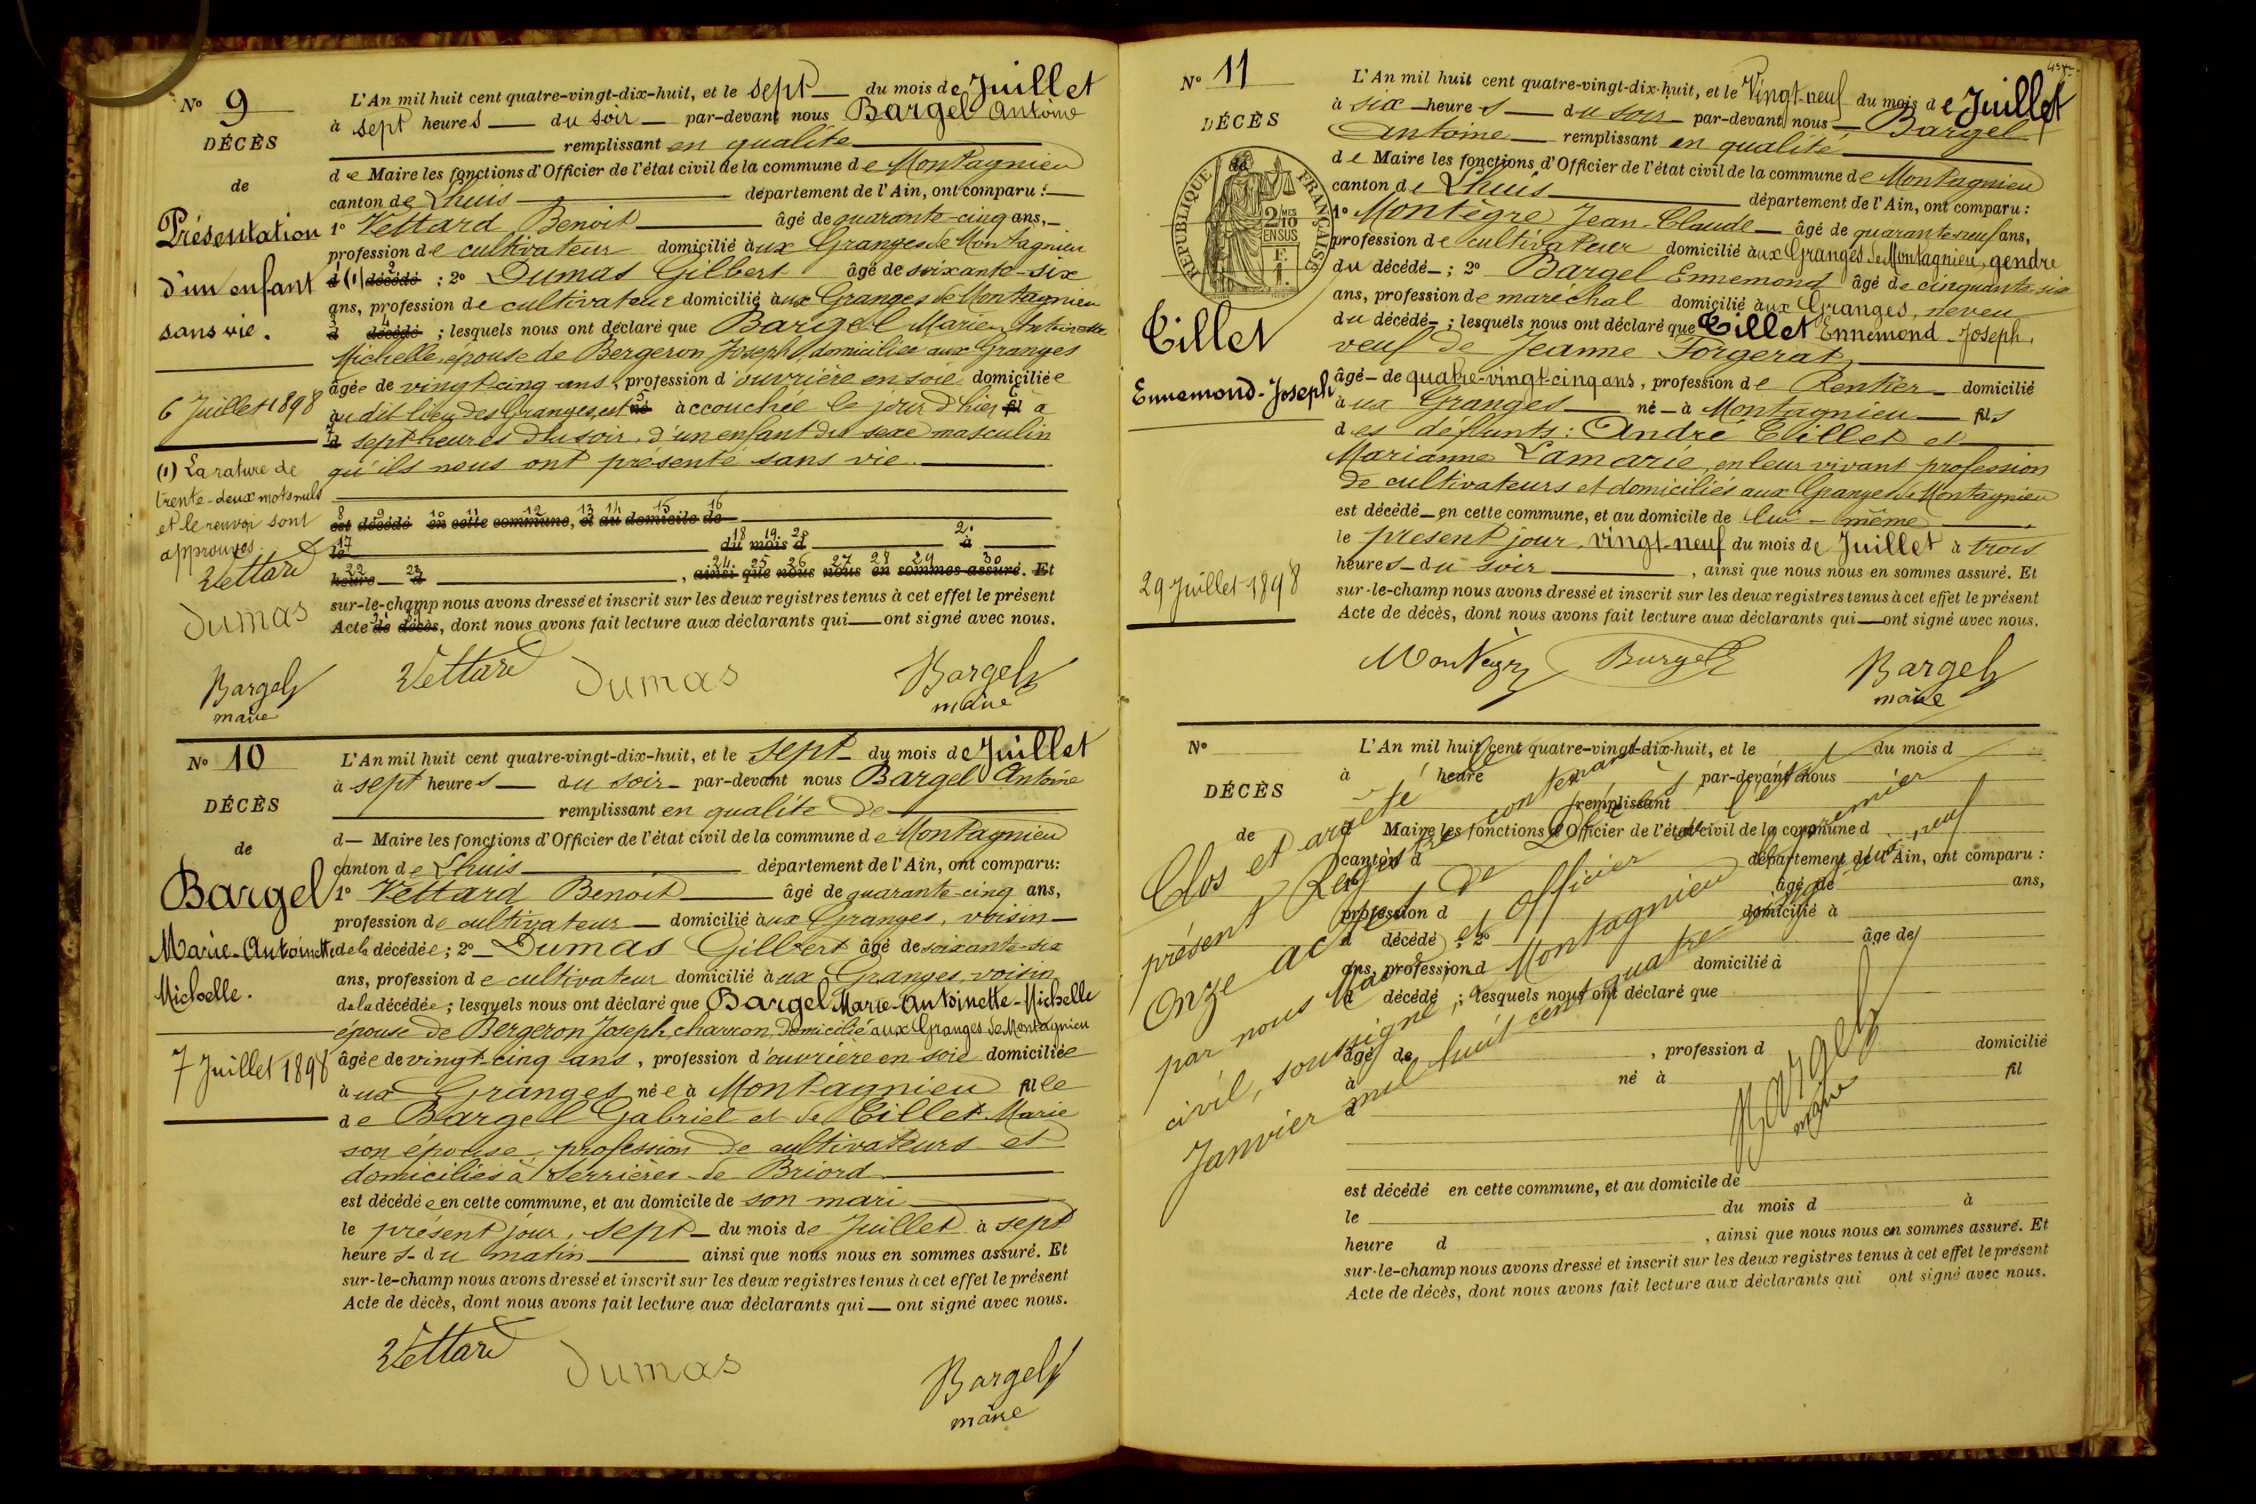 N° 9
DÉCÈS
de
Présentation
d'un enfant
sans vie.
6 Juillet 1898
(1) La rature de
trente-deux mots nuls
et le renvoi sont
approuvés
Vettard
Dumas
Bargel
maire
L'An mil huit cent quatre-vingt-dix-huit, et le sept du mois de Juillet
à sept heures du soir par-devant nous Bargel Antoine
remplissant en qualité
de Maire les fonctions d'Officier de l'état civil de la commune de Montagnieu
canton de Lhuis département de l'Ain, ont comparu :
1° Vettard Benoit âgé de quarante-cinq ans,
profession de cultivateur domicilié aux Granges de Montagnieu
d (1) décédé ; 2° Dumas Gilbert âgé de soixante-six
ans, profession de cultivateur domicilié aux Granges de Montagnieu
d décédé ; lesquels nous ont déclaré que Bargel Marie Antoinette
Michelle, épouse de Bergeron Joseph domiciliée aux Granges
âgée de vingt-cinq ans, profession d'ouvrière en soie domiciliée
au dit lieu des Granges, est né accouchée le jour d'hier fil à
d sept heures du soir, d'un enfant du sexe masculin
qu'ils nous ont présenté sans vie.
est décédé en cette commune, et au domicile de
le du mois d à
heure d , ainsi que nous nous en sommes assuré. Et
sur-le-champ nous avons dressé et inscrit sur les deux registres tenus à cet effet le présent
Acte de décès, dont nous avons fait lecture aux déclarants qui ont signé avec nous.
Vettard Dumas Bargel
maire
N° 10
DÉCÈS
de
Bargel
Marie-Antoinette
Michelle.
7 Juillet 1898
L'An mil huit cent quatre-vingt-dix-huit, et le sept du mois de Juillet
à sept heures du soir par-devant nous Bargel Antoine
remplissant en qualité de
d Maire les fonctions d'Officier de l'état civil de la commune de Montagnieu
canton de Lhuis département de l'Ain, ont comparu:
1° Vettard Benoit âgé de quarante-cinq ans,
profession de cultivateur domicilié aux Granges, voisin
de la décédée ; 2° Dumas Gilbert âgé de soixante-six
ans, profession de cultivateur domicilié aux Granges voisin
de la décédée ; lesquels nous ont déclaré que Bargel Marie-Antoinette-Michelle
épouse de Bergeron Joseph, charron, domicilié aux Granges de Montagnieu
âgée de vingt-cinq ans, profession d'ouvrière en soie domiciliée
aux Granges née à Montagnieu fille
de Bargel Gabriel et de Tillet Marie
son épouse, profession de cultivateurs et
domiciliés à Serrières-de-Briord
est décédée en cette commune, et au domicile de son mari
le présent jour, sept du mois de Juillet à sept
heures du matin ainsi que nous nous en sommes assuré. Et
sur-le-champ nous avons dressé et inscrit sur les deux registres tenus à cet effet le présent
Acte de décès, dont nous avons fait lecture aux déclarants qui ont signé avec nous.
Vettard Dumas Bargel
maire
N° 11
DÉCÈS
de
RÉPUBLIQUE FRANÇAISE
2/10 MES
EN SUS
Tillet
Ennemond-Joseph
29 Juillet 1898
L'An mil huit cent quatre-vingt-dix-huit, et le Vingt-neuf du mois de Juillet
à six heures du soir par-devant nous Bargel
Antoine remplissant en qualité
de Maire les fonctions d'Officier de l'état civil de la commune de Montagnieu
canton de Lhuis département de l'Ain, ont comparu :
1° Montègre Jean-Claude âgé de quarante-neuf ans,
profession de cultivateur domicilié aux Granges de Montagnieu, gendre
du décédé ; 2° Bargel Ennemond âgé de cinquante-six
ans, profession de maréchal domicilié aux Granges, neveu
du décédé ; lesquels nous ont déclaré que Tillet Ennemond-Joseph,
veuf de Jeanne Forgerat
âgé de quatre-vingt-cinq ans, profession de Rentier domicilié
aux Granges né à Montagnieu fils
des défunts : André Tillet et
Marianne Lamarie, en leur vivant profession
de cultivateurs et domiciliés aux Granges de Montagnieu
est décédé en cette commune, et au domicile de lui-même
le présent jour vingt-neuf du mois de Juillet à trois
heures du soir , ainsi que nous nous en sommes assuré. Et
sur-le-champ nous avons dressé et inscrit sur les deux registres tenus à cet effet le présent
Acte de décès, dont nous avons fait lecture aux déclarants qui ont signé avec nous.
Bargel Bargel
maire
N°
DÉCÈS
de
L'An mil huit cent quatre-vingt-dix-huit, et le du mois d
à heure par-devant nous
remplissant
d Maire les fonctions d'Officier de l'état civil de la commune d
canton d département de l'Ain, ont comparu :
1° âgé de ans,
profession d domicilié à
d décédé ; 2° âgé de
ans, profession d domicilié à
d décédé ; lesquels nous ont déclaré que
âgé de , profession d domicilié
à né à fil
d
est décédé en cette commune, et au domicile de
le du mois d à
heure d , ainsi que nous nous en sommes assuré. Et
sur-le-champ nous avons dressé et inscrit sur les deux registres tenus à cet effet le présent
Acte de décès, dont nous avons fait lecture aux déclarants qui ont signé avec nous.
Clos et arrêté le
présent Registre contenant
Onze actes de Décès
par nous Maire et officier de l'état
civil, soussigné, à Montagnieu le premier
Janvier mil huit cent quatre-vingt-dix-neuf
Bargel
maire